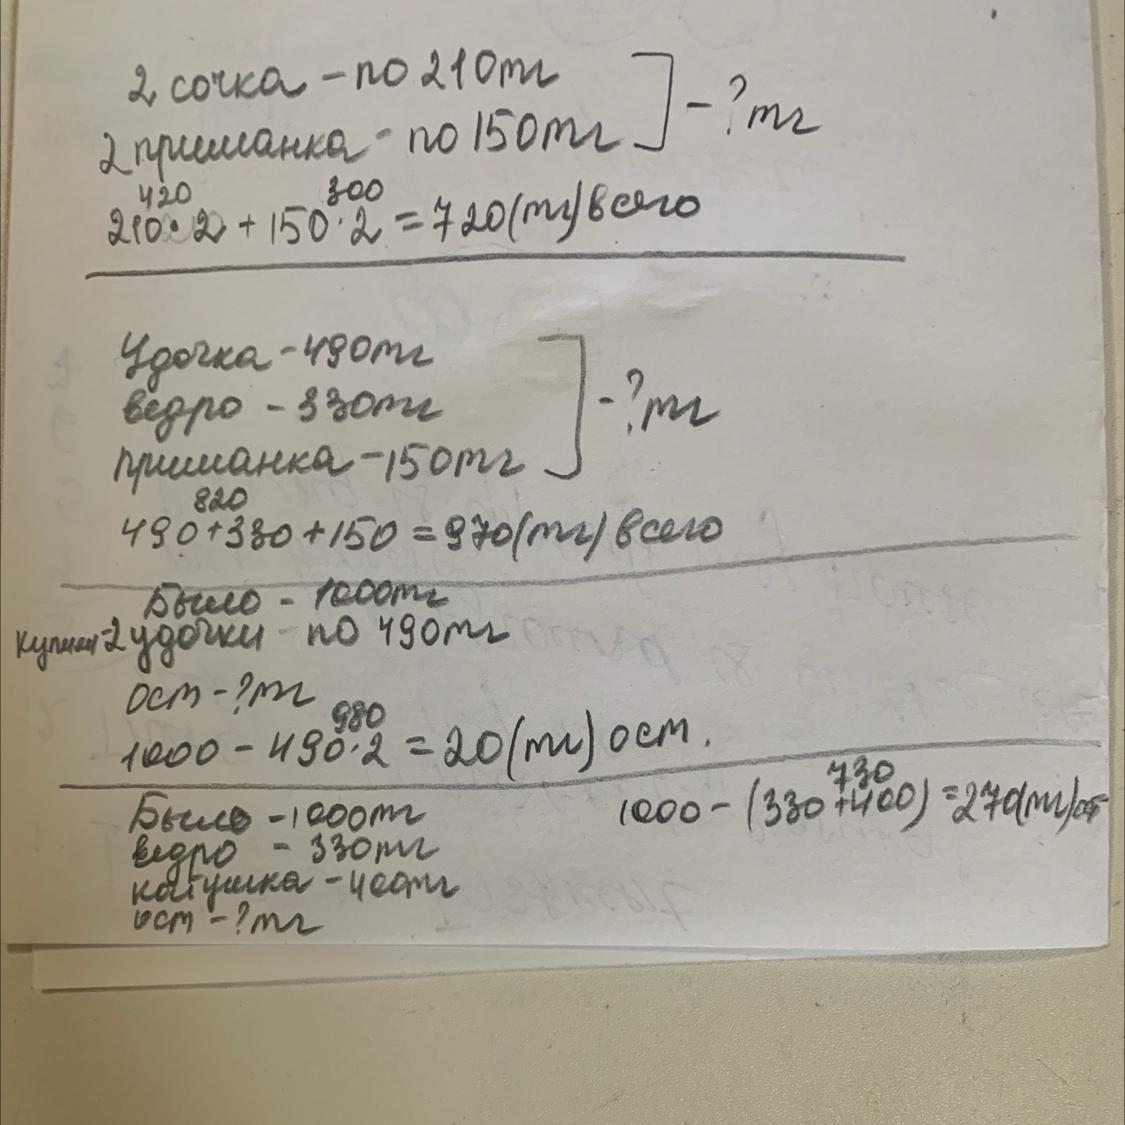 2 сочка - по 210тг
2 приманка - по 150тг ] - ? тг
420 300
210·2 + 150·2 = 720(тг) всего
Удочка - 490тг
ведро - 330тг ] - ? тг
приманка - 150тг
820
490+330+150 = 970(тг) всего
Было - 1000тг
Купили - 2 удочки по 490тг
ост - ? тг
980
1000 - 490·2 = 20(тг) ост.
730
Было - 1000тг 1000 - (330+400) = 270(тг)
ведро - 330тг
катушка - 400тг
ост - ? тг